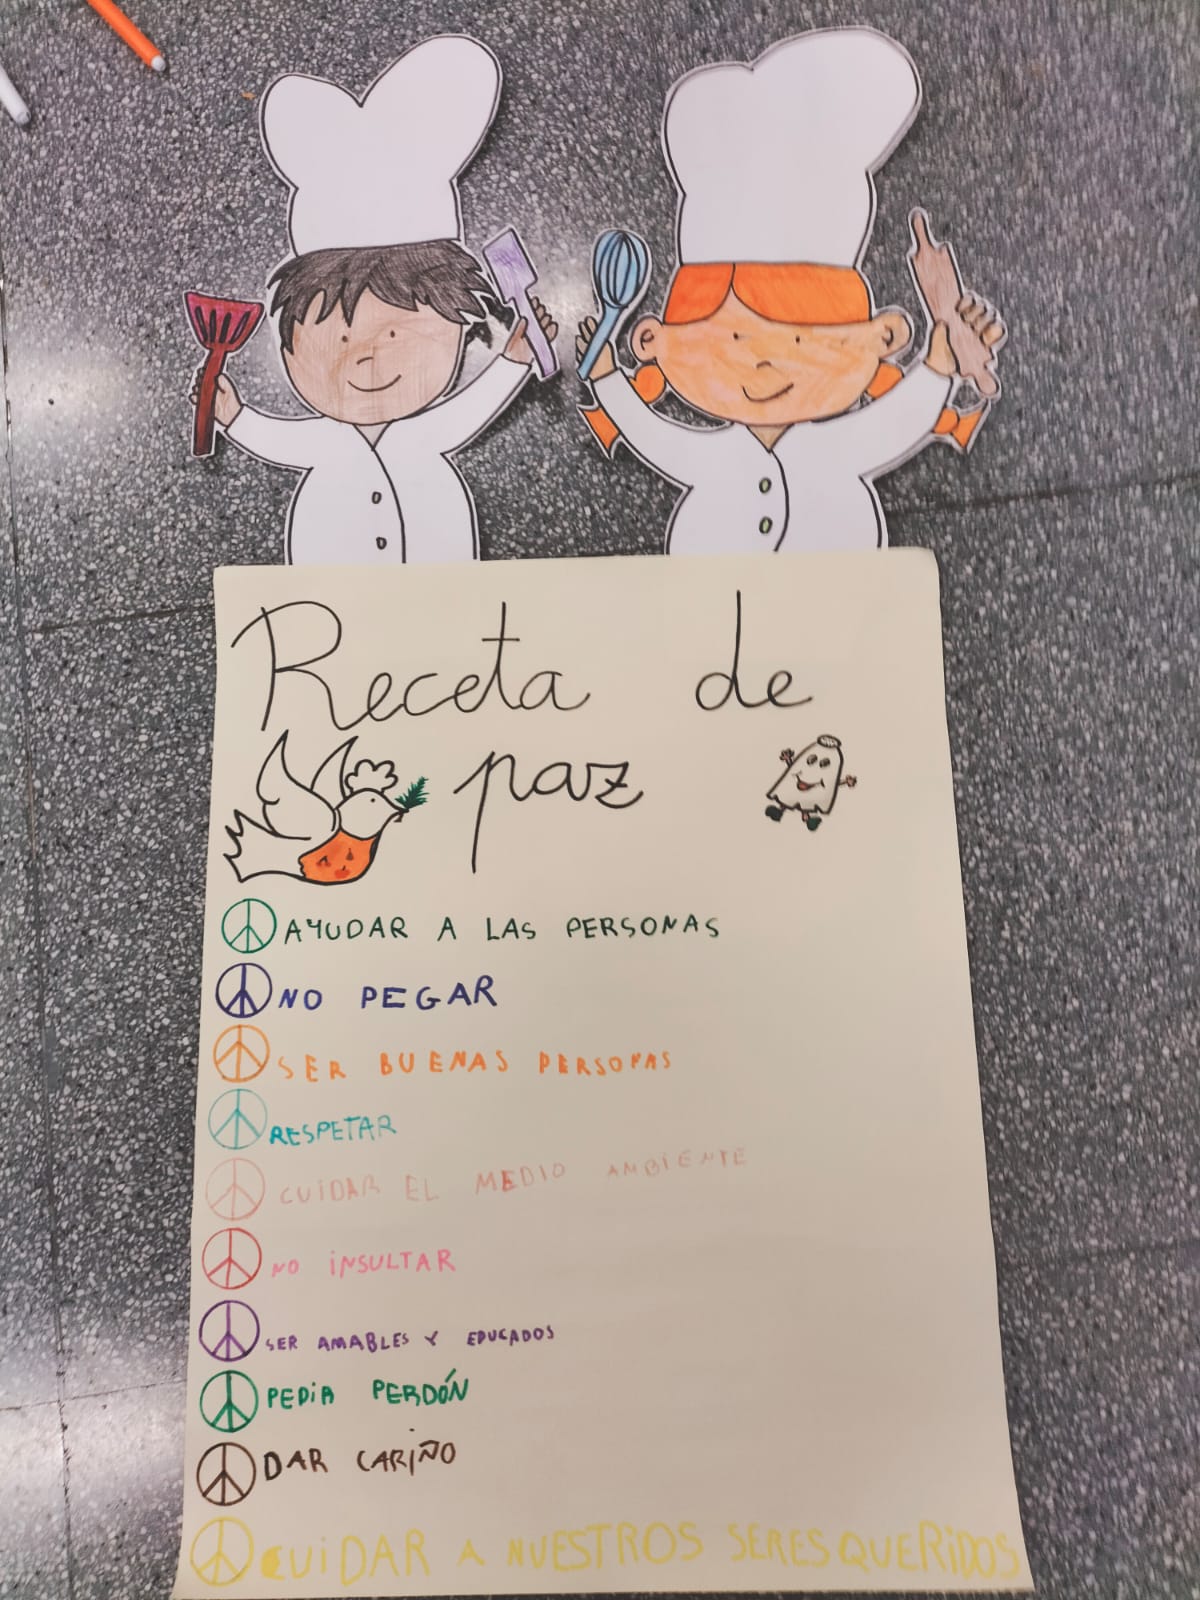 Receta de
paz
AYUDAR A LAS PERSONAS
NO PEGAR
SER BUENAS PERSONAS
RESPETAR
CUIDAR EL MEDIO AMBIENTE
NO INSULTAR
SER AMABLES Y EDUCADOS
PEDIR PERDÓN
DAR CARIÑO
CUIDAR A NUESTROS SERES QUERIDOS